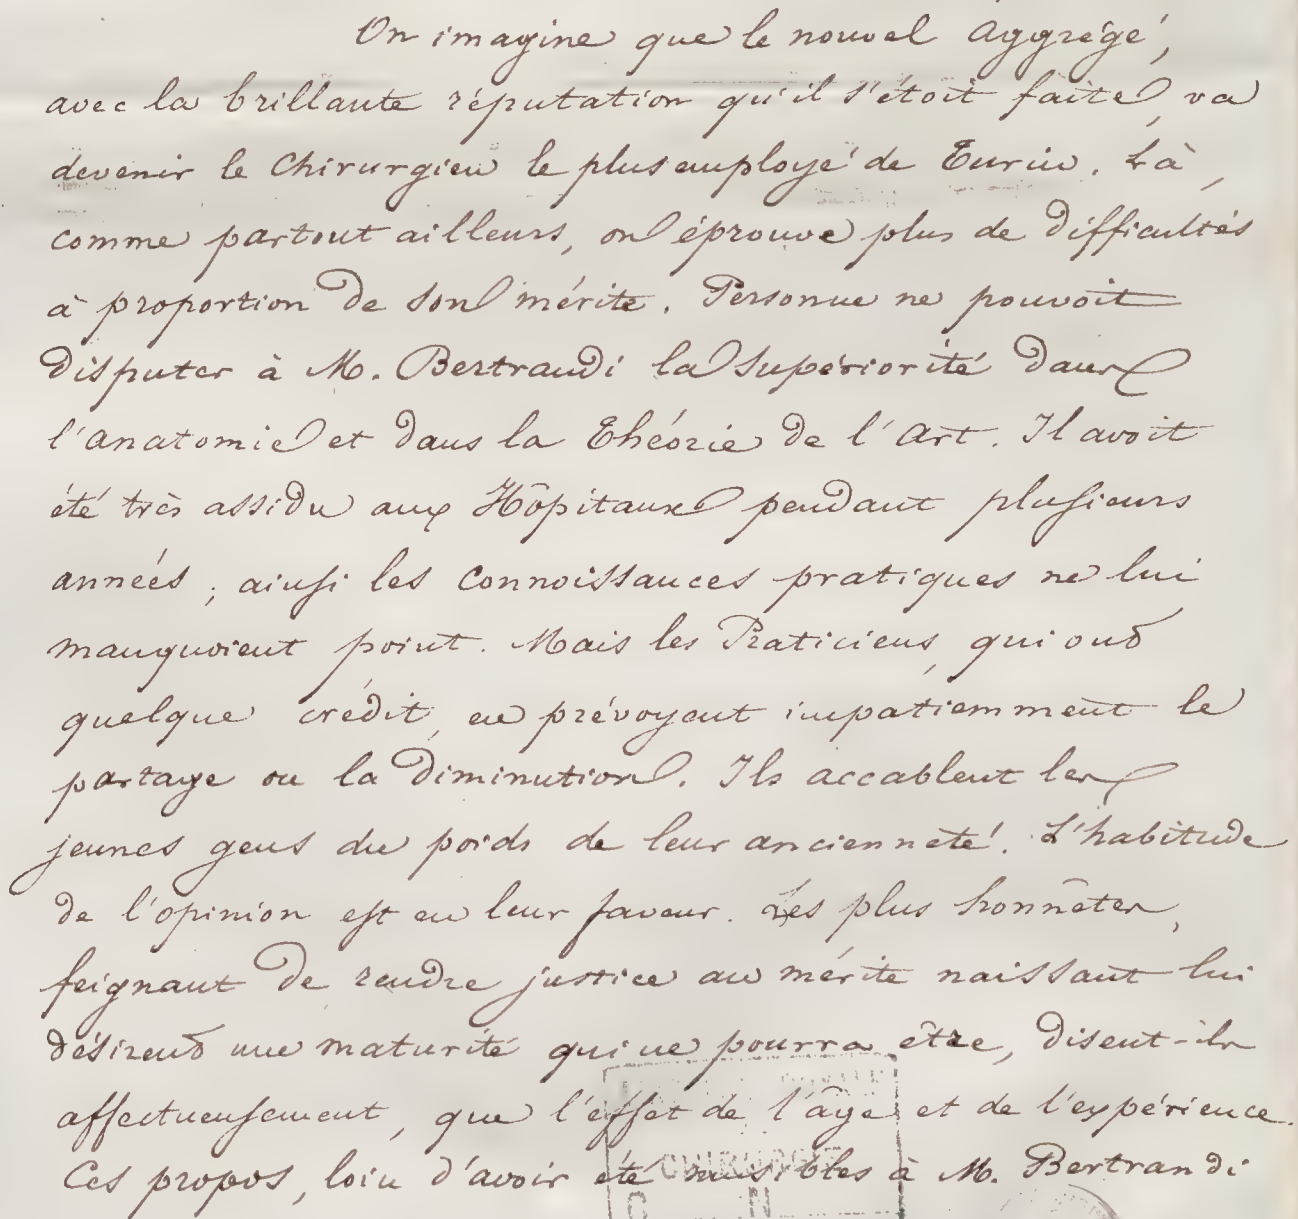 On imagine que le nouvel Aggrégé,
avec la brillante réputation qu'il s'étoit faite, va
devenir le Chirurgien le plus employé de Turin. Là,
comme partout ailleurs, on éprouve plus de difficultés
à proportion de son mérite. Personne ne pouvoit
disputer à M. Bertrandi la supériorité dans
l'anatomie et dans la Théorie de l'Art. Il avoit
été très assidu aux Hôpitaux pendant plusieurs
années ; ainsi les connoissances pratiques ne lui
manquoient point. Mais les Praticiens, qui ont
quelque crédit, en prévoyent impatiemment le
partage ou la diminution. Ils accablent les
jeunes gens du poids de leur ancienneté. L'habitude
de l'opinion est en leur faveur. Les plus honnêtes,
feignant de rendre justice au mérite naissant lui
désirent une maturité qui ne pourra être, disent-ils
affectueusement, que l'effet de l'âge et de l'expérience.
Ces propos, loin d'avoir été nuisibles à M. Bertrandi
CHIRURGIE